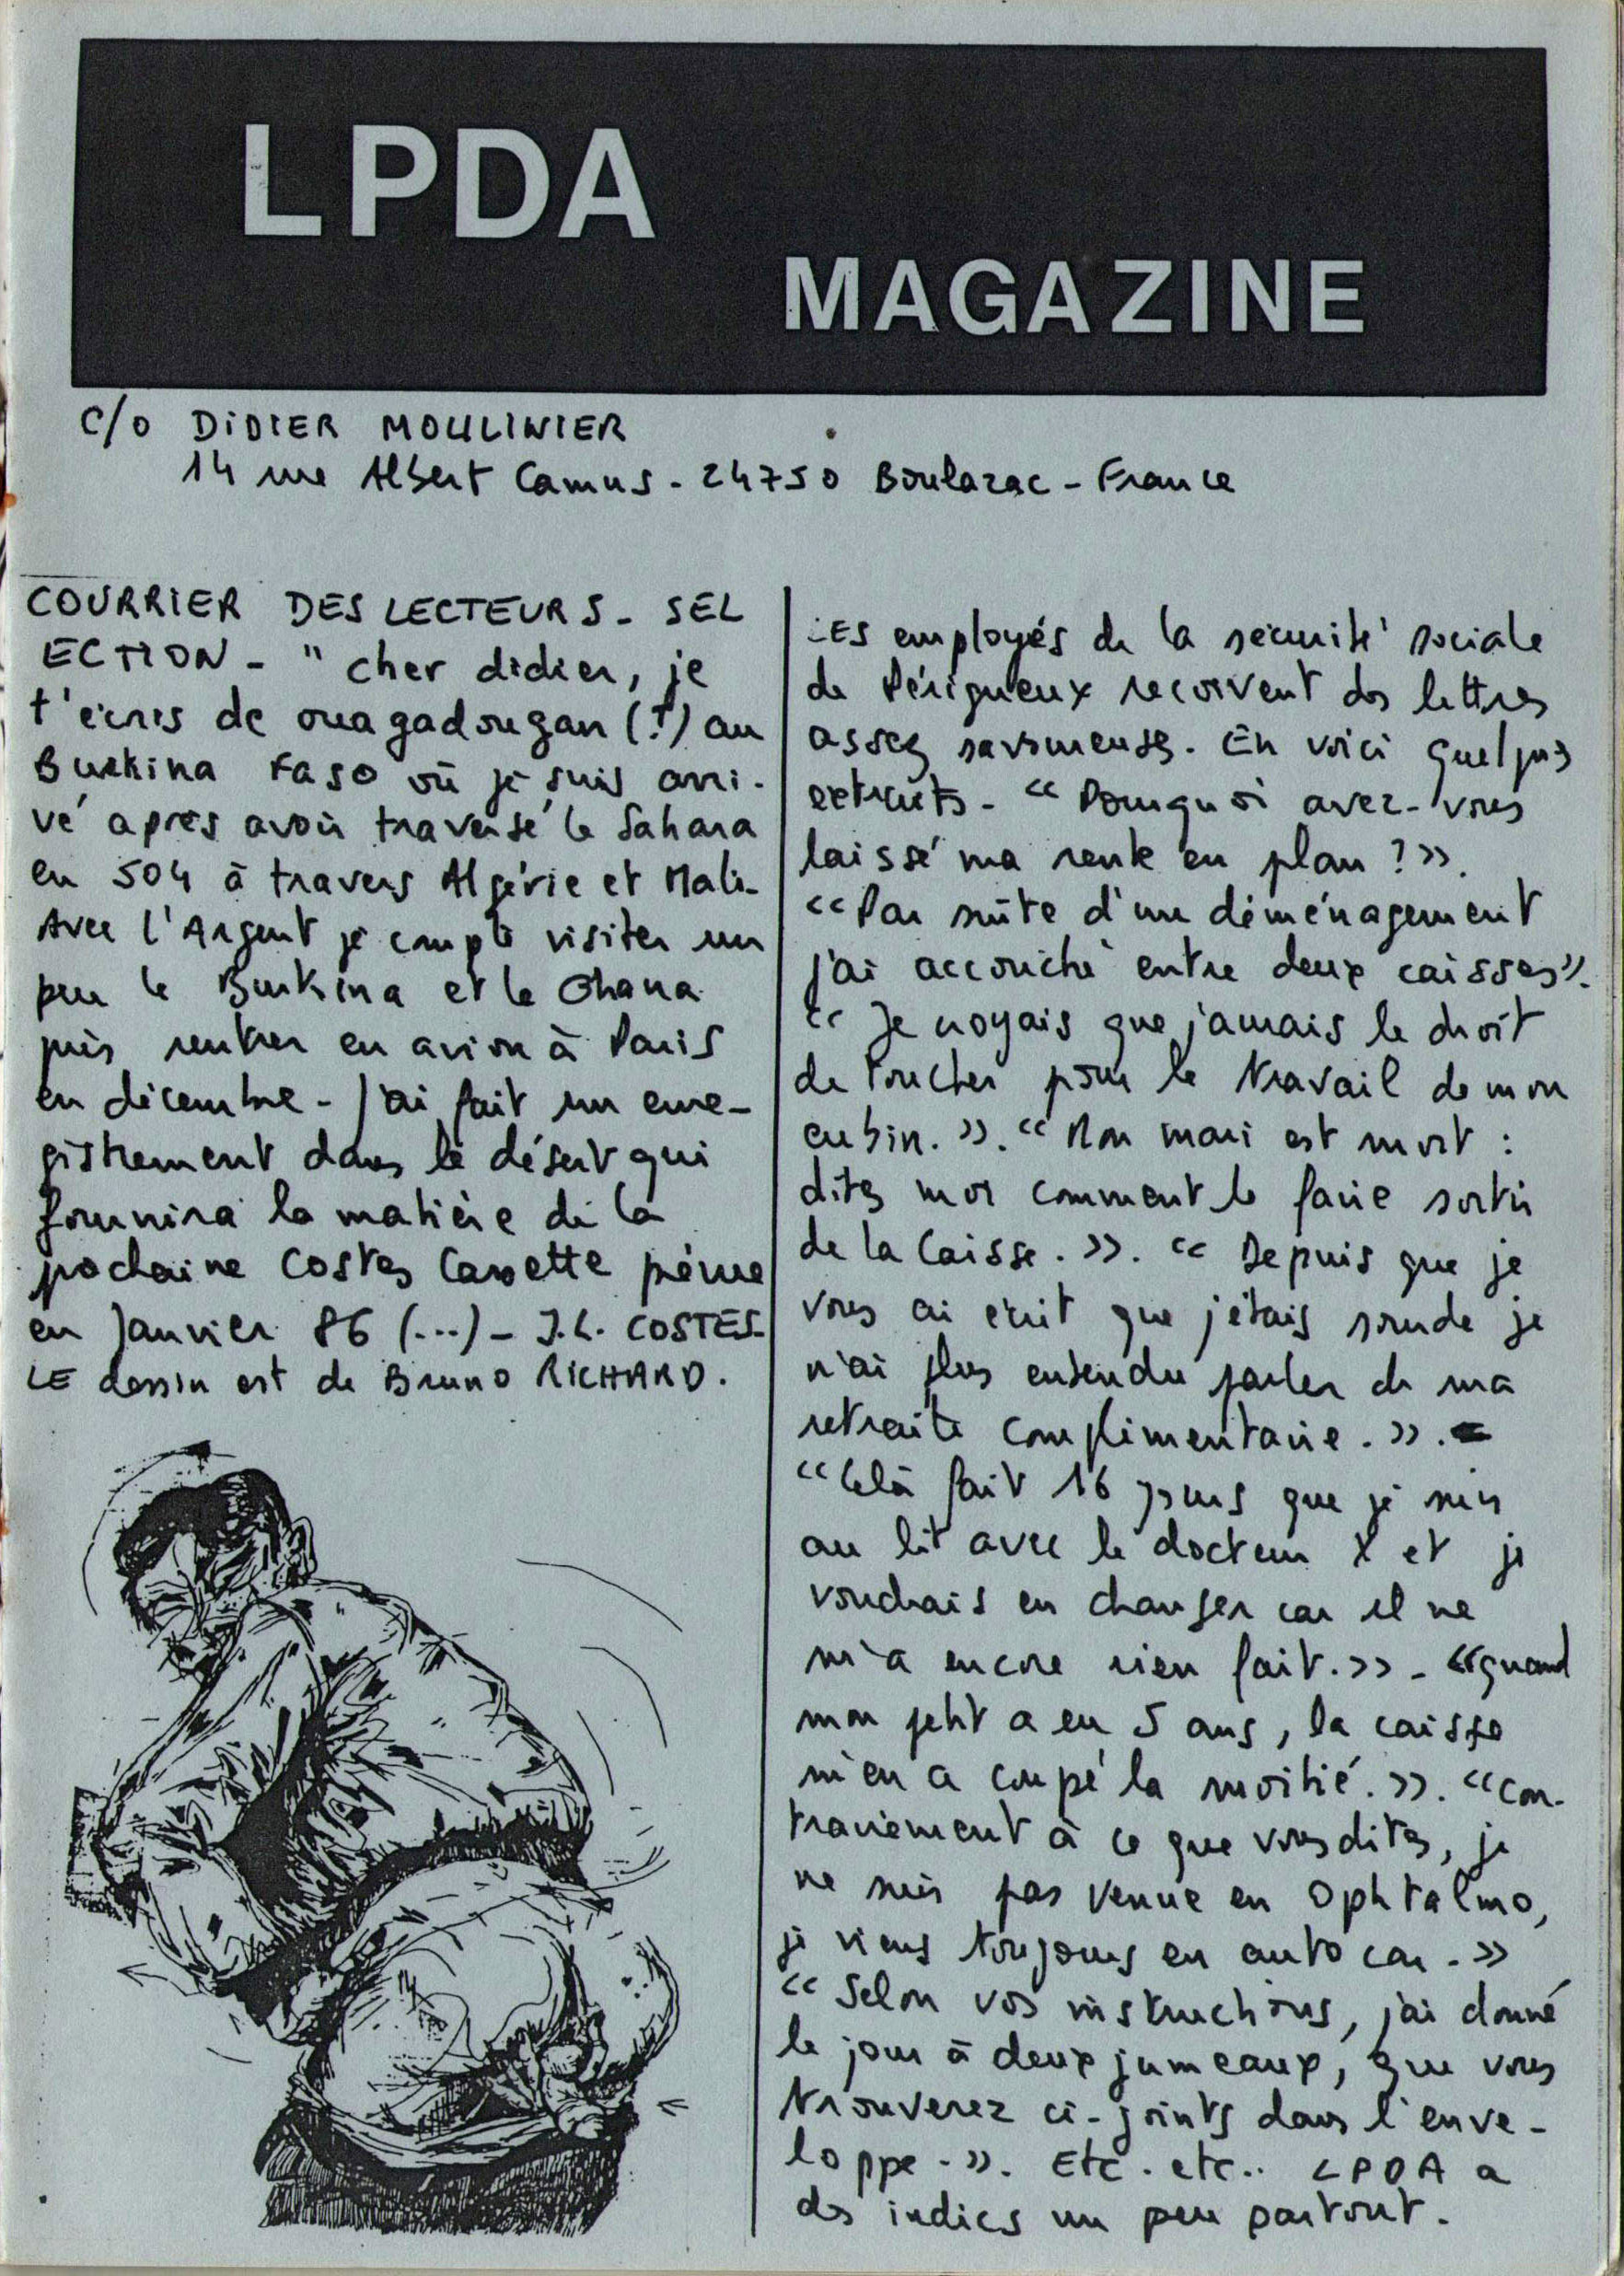 LPDA
MAGAZINE
C/O DiDIER MOULINIER
14 rue Albert Camus - 24750 Boulazac - France
COURRIER DES LECTEURS - SEL
ECTION - " cher didier, je
t'écris de ouagadougan (?) au
Burkina Faso où je suis arri-
vé après avoir traversé le Sahara
en 504 à travers Algérie et Mali-
Avec l'Argent je compte visiter un
peu le Burkina et le Ghana
puis rentrer en avion à Paris
en décembre - J'ai fait un enre-
gistrement dans le désert qui
fournira la matière de la
prochaine Costes Cassette prévue
en Janvier 86 (...) - J.L. COSTES-
LE dessin est de Bruno RICHARD.
LES employés de la sécurité sociale
de Périgueux reçoivent des lettres
assez savoureuses. En voici quelques
extraits - " Pourquoi avez-vous
laissé ma rente en plan ? ».
" Par suite d'un déménagement
j'ai accouché entre deux caisses".
" Je croyais que j'aurais le droit
de toucher pour le travail de mon
cubin. ». " Mon mari est mort :
dites moi comment le faire sortir
de la Caisse. ». " Depuis que je
vous ai écrit que j'étais sourde je
n'ai plus entendu parler de ma
retraite complimentaire. ». -
" Celà fait 16 jours que je suis
au lit avec le docteur X et je
voudrais en changer car il ne
m'a encore rien fait. » - " quand
mon petit a eu 5 ans, la caisse
m'en a coupé la moitié. ». " con-
trairement à ce que vous dites, je
ne suis pas venue en Ophtalmo,
je viens toujours en auto car. »
" Selon vos instructions, j'ai donné
le jour à deux jumeaux, que vous
trouverez ci-joints dans l'enve-
loppe. ». Etc. etc.. LPDA a
des indics un peu partout.